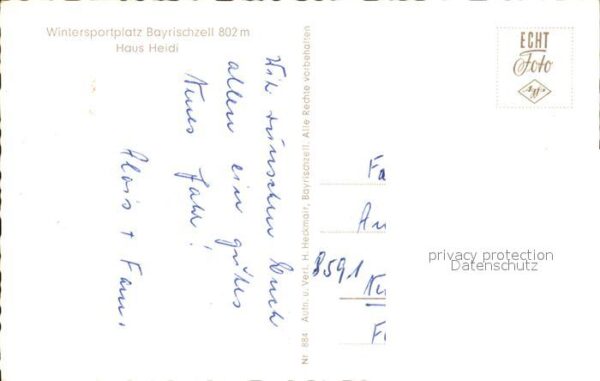 Wintersportplatz Bayrischzell 802 m
Haus Heidi
Wir wünschen Euch
allen ein gutes
Neues Jahr!
Alois + Fam.
Nr. 884 Aufn. u. Verl. H. Heckmair, Bayrischzell. Alle Rechte vorbehalten
ECHT
Foto
Fa
An
8591
privacy protection
Datenschutz